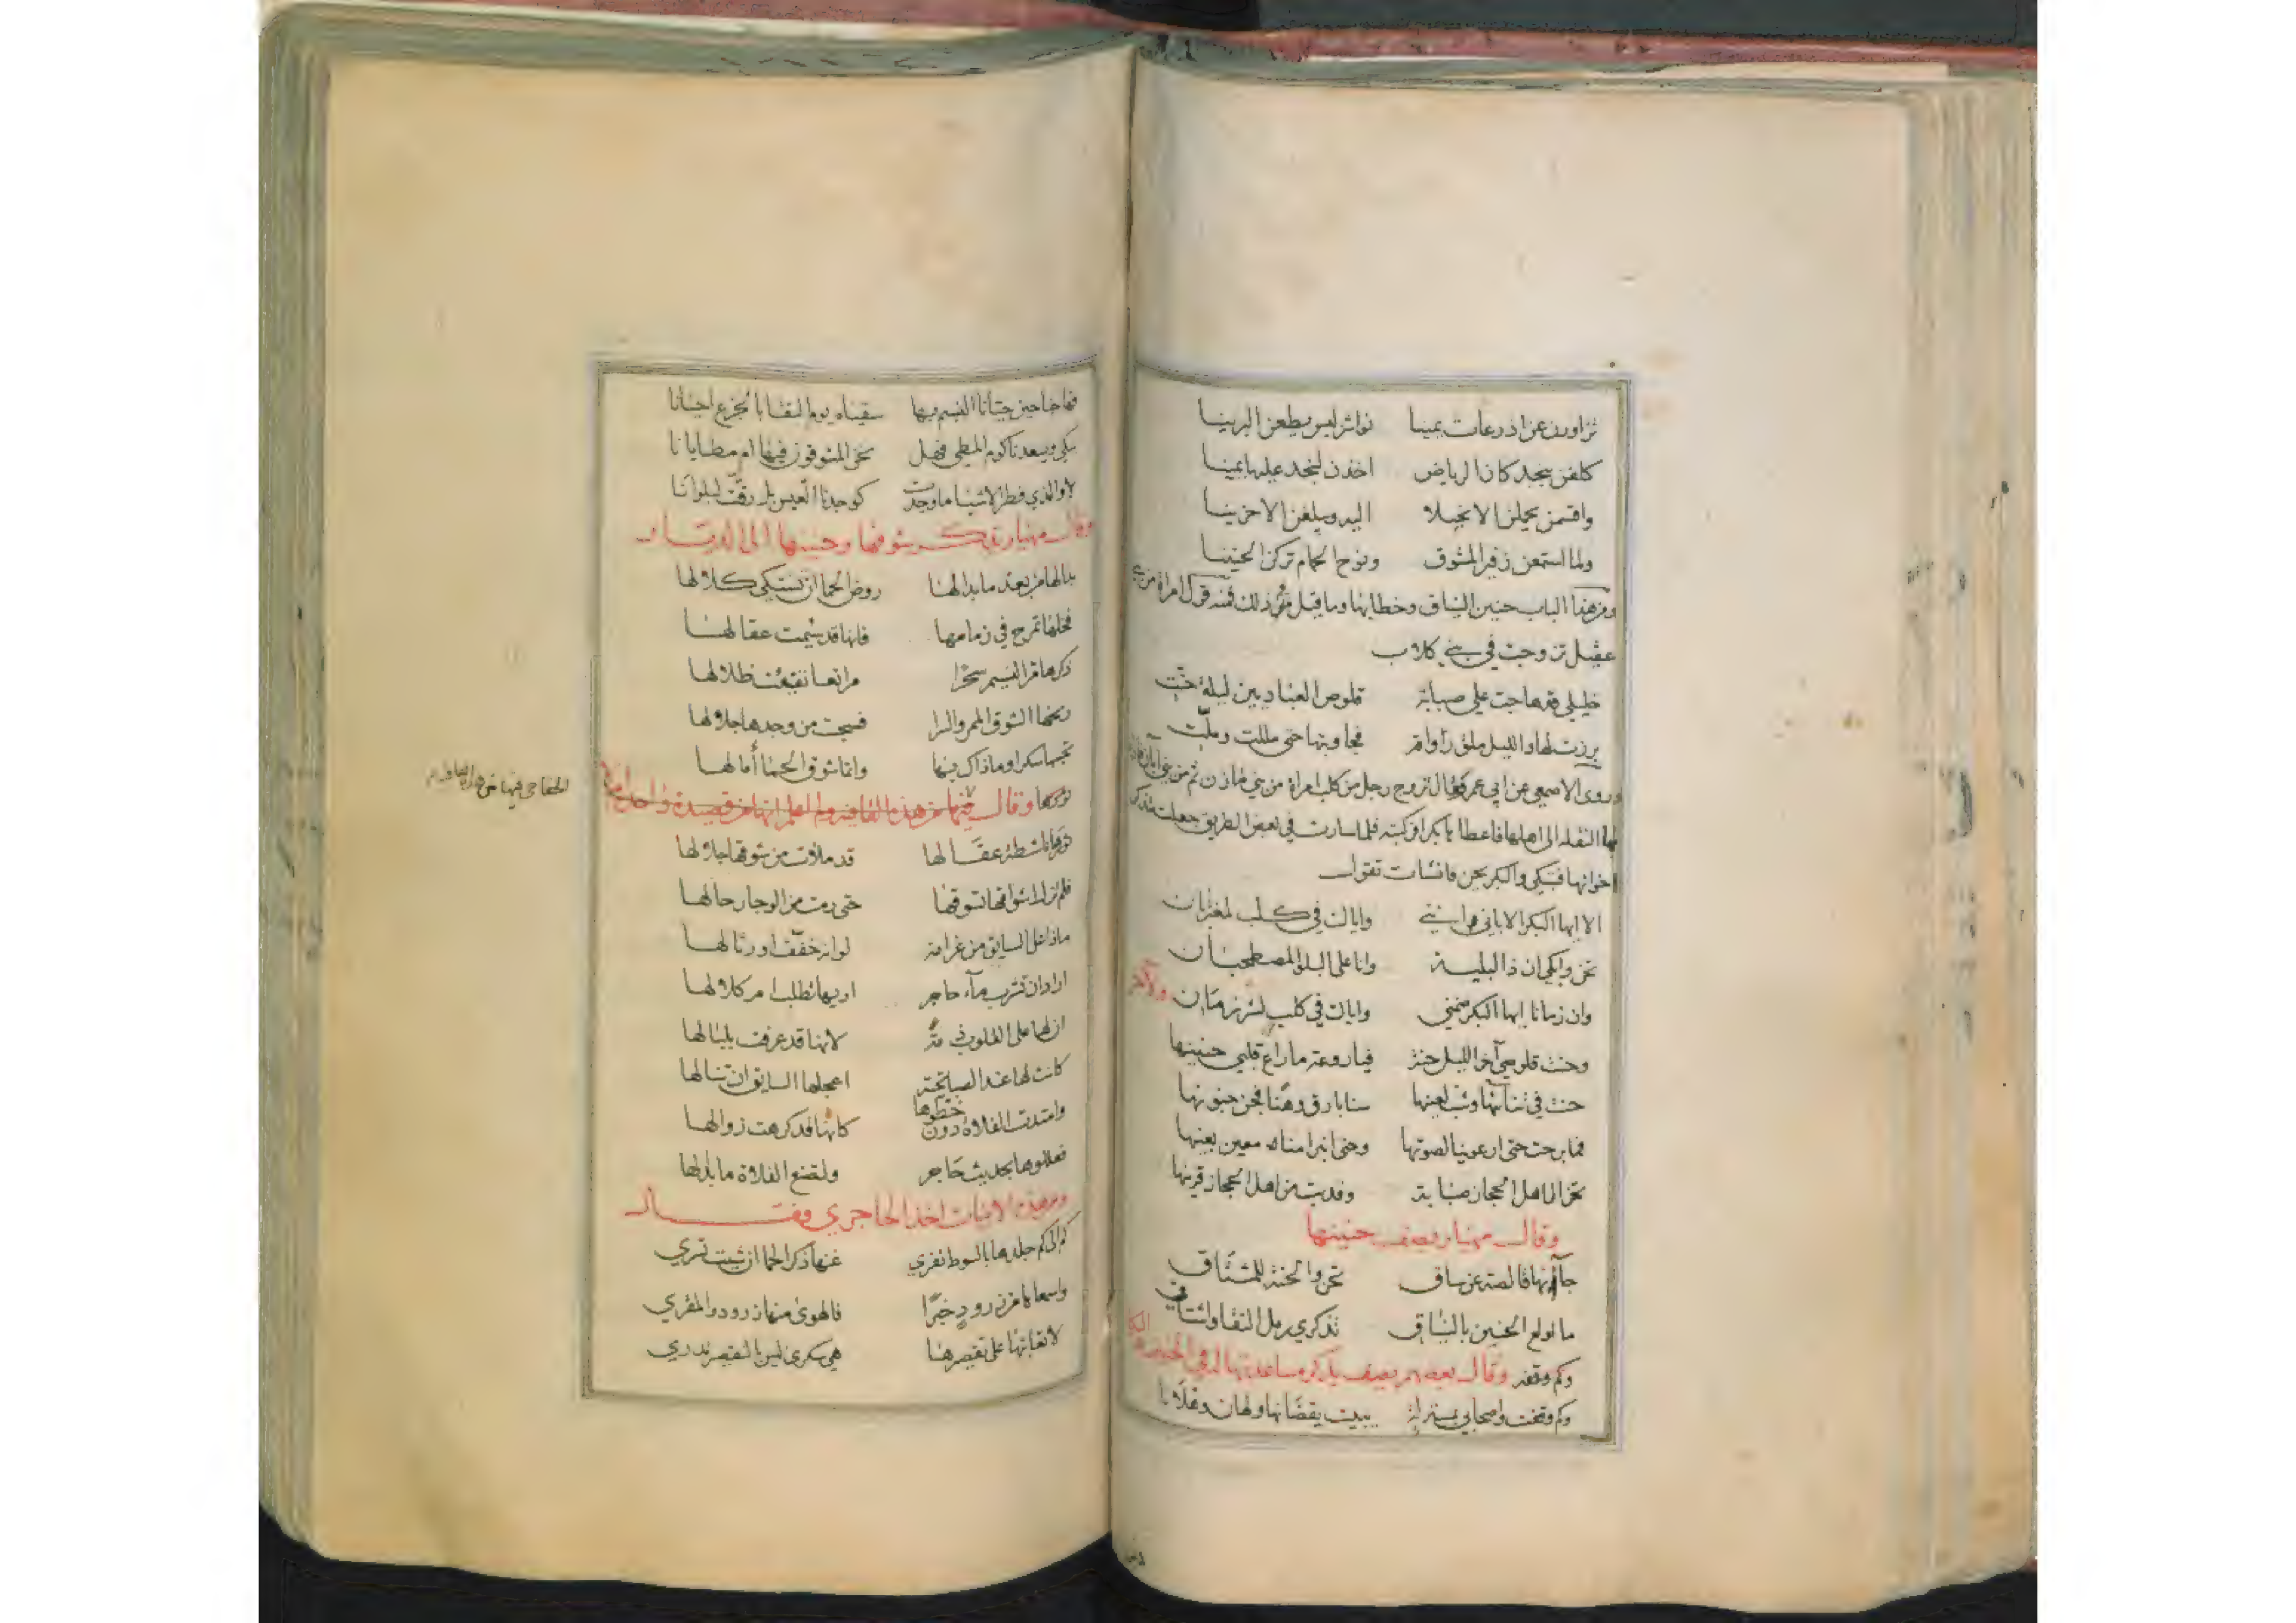 تزاورن عن اذرعات يمينا نواشز ليس يطعن البرينا
كلفن بنجد كان الرياض اخذن لنجد عليها يمينا
واقسمن يحملن الا نحيلا اليه ويبلغن الا حزينا
ولما استمعن زفير المشوق ونوح الحمام تركن الحنينا
ومن هذا الباب حنين النياق وخطابها وما قيل في ذلك فمنه قول امراة من
عقيل تزوجت في بني كلاب
خليلي قد هاجت علي صبابة قلوص العبادين ليلة حنت
برزت لها والليل ملق رواقه فجاوبتها حتى مللت وملت
وروى الاصمعي عن ابي عمرو قال تزوج رجل من كلب امراة من بني مازن ثم من بني
النقله الى اهلها فاعطاها بكرا فركبته فلما سارت في بعض الطريق جعلت تتذكر
اخوانها فتبكي والبكر يحن فانشات تقول
الا ايها البكر الاباني انني واياك في كلب لمغتربان
نحن وابكي ان ذا لبلية وانا على البلوى لمصطحبان
وان زمانا ايها البكر ضمني واياك في كلب لشر زمان ولآخر
وحنت قلوصي آخر الليل حنة فيا روعة ما راع قلبي حنينها
حنت في ثنائها وشب لعينها سنا بارق وهنا فجن جنونها
فما برحت حتى ارعوينا لصوتها وحتى انبرا منا له معين يعينها
تحن الى اهل الحجاز صبابة وقد بت من اهل الحجاز قرينها
وقال مهيار يصف حنينها
جآ بها قالصة عن ساق تحن والحنة للمشتاق
ما اولع الحنين بالنياق تذكري رمل النقا واشتاقي
وكم وقفة وقال بعضهم يصف بكره مساعدتها له في الحنين
وكم وقفت واصحابي بمنزلة يبيت يقضانها ولهان وغلانا
فهاجنا حين حيانا النسيم بها سقيناه يوم النقا بالجزع احيانا
يبكي ويسعدنا كوم المطي فهل نحن المشوقون فيها ام مطايانا
لا والذي فطر الاشيا ما وجدت كوجدنا العيس بل رقت لبلوانا
وقال مهيار يذكر شوقها وحنينها الى الديار
بدا لها من بعد ما بدا لها روض الحما ان تشتكي كلالها
فخلها تمرح في زمامها فانها قد سئمت عقالها
ذكرها مر النسيم سحرا مراتعا تفيئت ظلالها
ريحها الشوق الممر والسرا فسبحت من وجدها جلالها
تحسبها سكرا وما ذاك بها وانما شوق الحما أمالها
وقال فيها من هذه القافيه ولم اعلم انها من قصيدة واحدة ام لا
الخفاجي فيها من هذه القافية
قد ملأت من شوقها جلالها
فلم تزل اشواقها تسوقها حتى رمت من الوجا رحالها
ماذا على السايق من غرامه لو انه خفف او رثا لها
اراد ان تشرب مآء حاجر اريها تطلب ام كلالها
ان لها على القلوب ذمة لانها قد عرفت بلبالها
كانت لها عند الصبا تحية اعجلها السايق ان تنالها
وامتدت الفلاة دون خطوها كانها قد كرهت زوالها
فعللوها بحديث حاجر ولتصنع الفلاة ما بدا لها
ومن هذه الابيات اخذ الحاجري وقال
كم الى كم جلدها بالسوط تفري غنها ذكر الحما ان شئت تسري
واسعاها من زرود خبرا فالهوى منها زرود والمقري
لا تعاتبها على تقصيرها هي سكرى ليس بالتقصير تدري